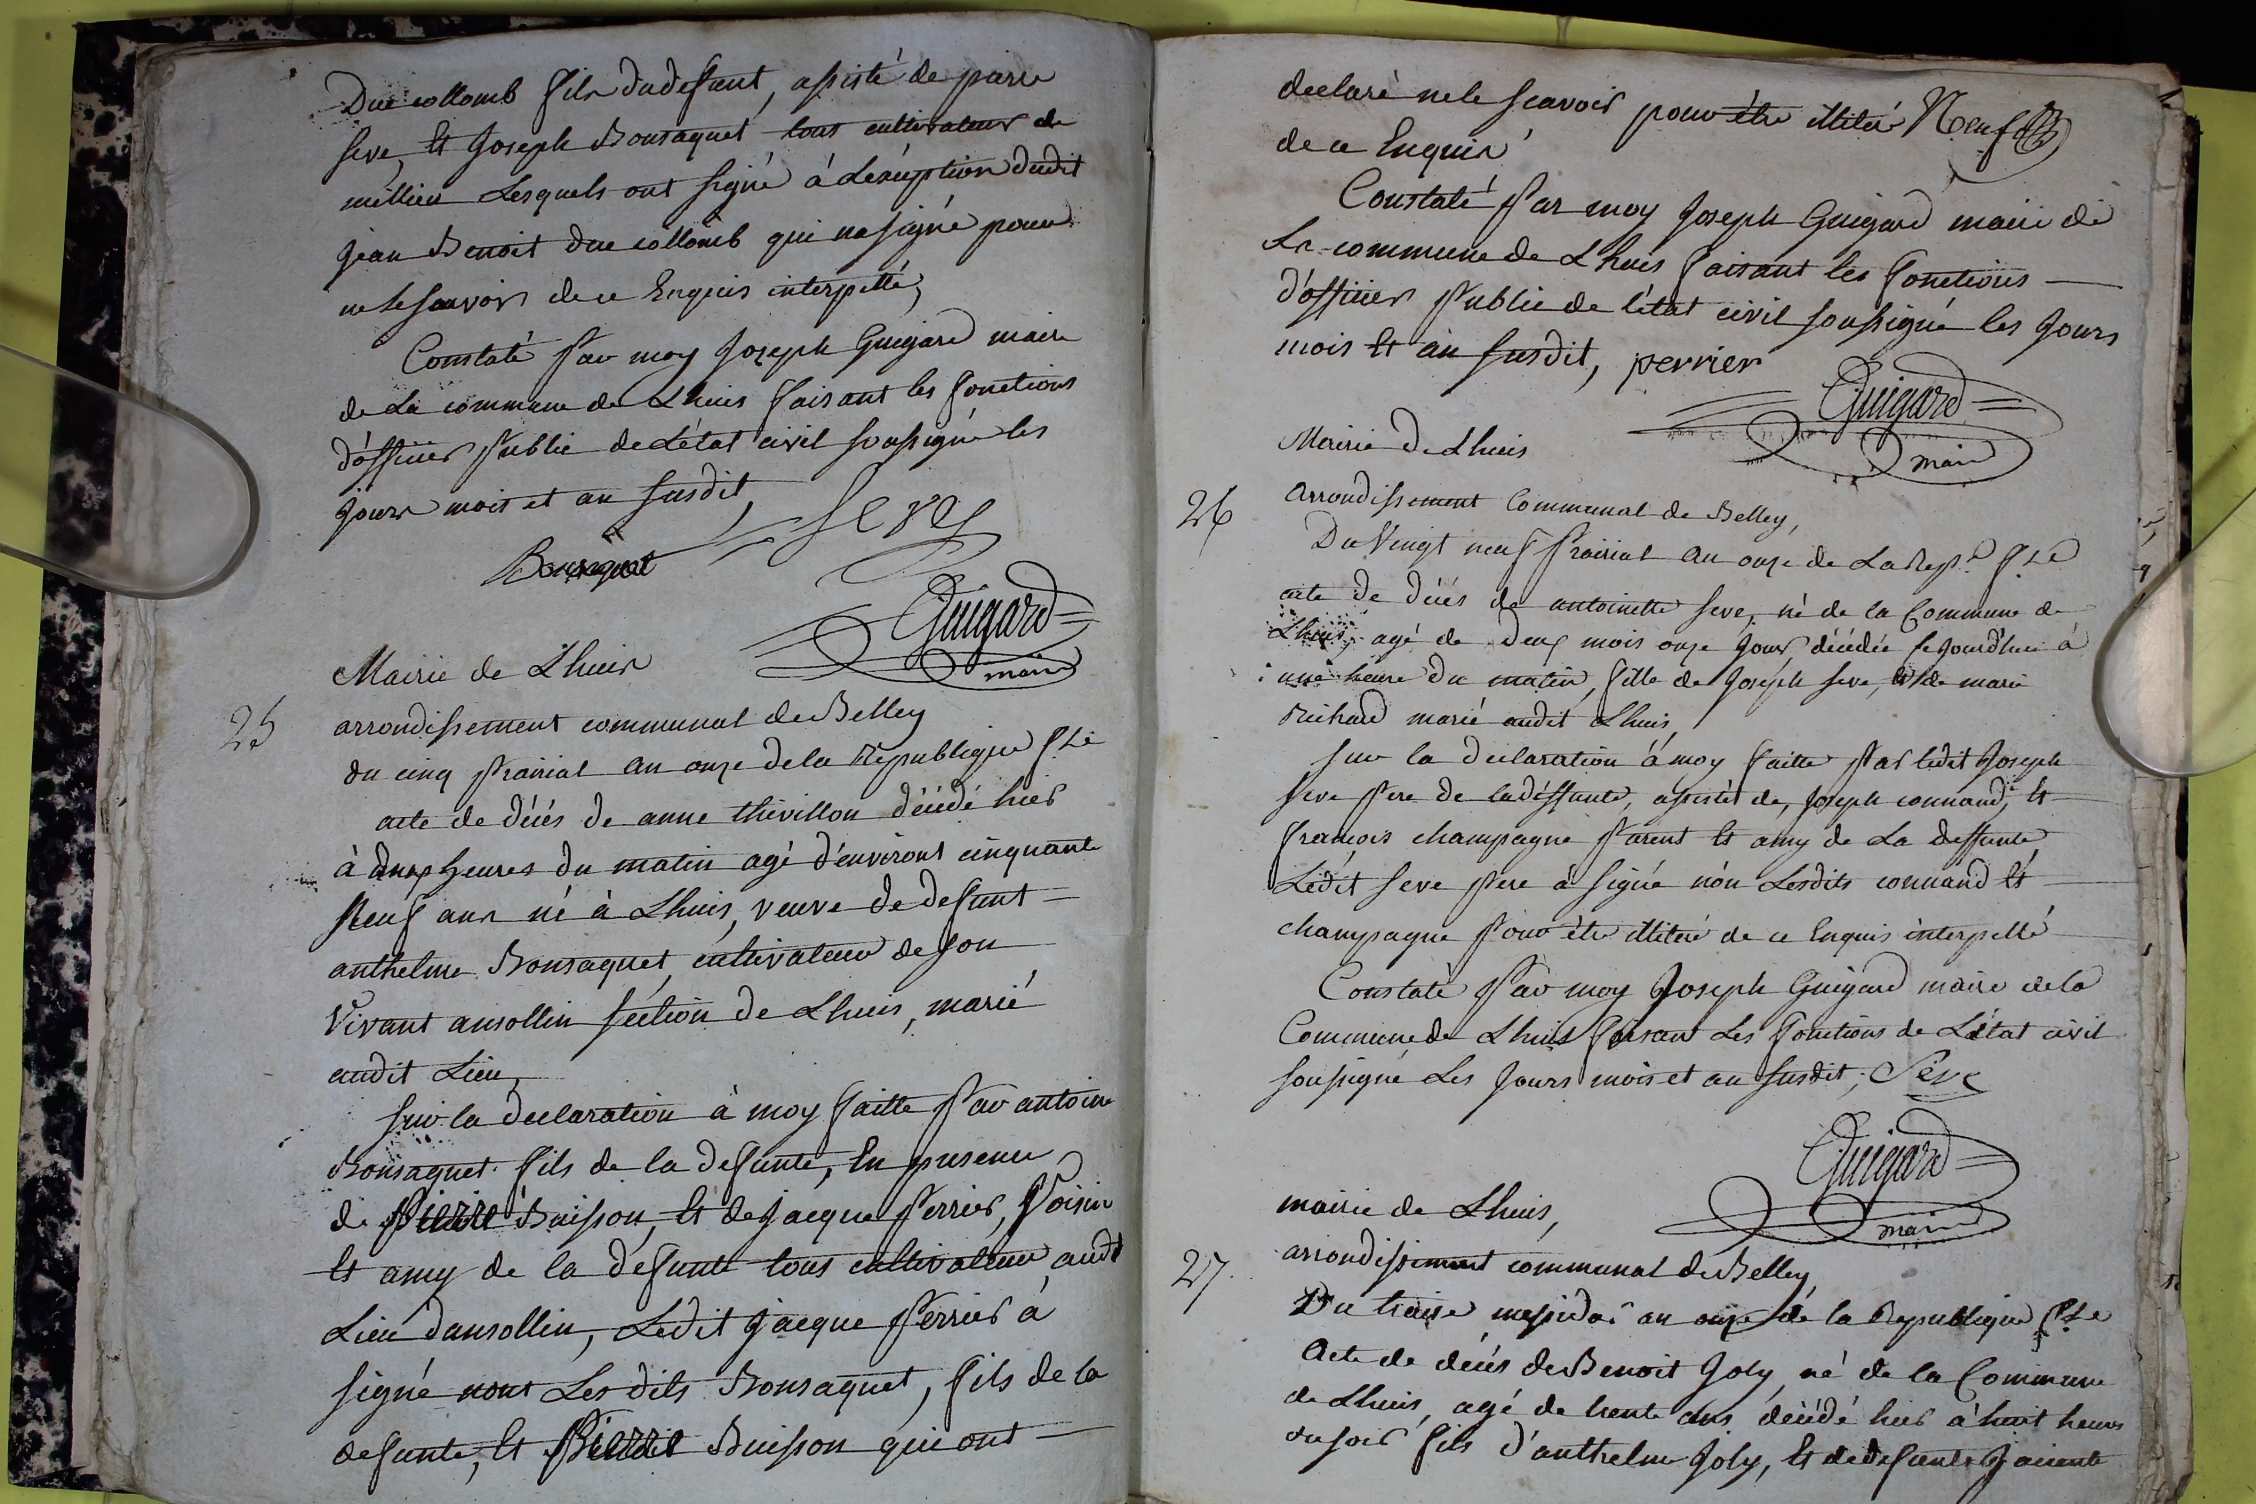 Duc collomb fils dudefunt, assisté de pierre
seve, et Joseph Bonsaquet tous cultivateur de
millieu Lesquels ont signé à Lexéption dudit
jean Benoit duc collomb qui na signé pour
ne le scavoir de ce Enquis interpellé,
Constaté Par moy Joseph Guigard maire
de La commune de Lhuis faisant les fonctions
d'officier Public de L'état civil soussigné les
jours mois et an susdit,
Bonsaquet
seve
Guigard
maire
Mairie de Lhuis
25
arrondissement communal de Belley
du cinq Prairial an onze de la Republique fse
acte de décés de anne thévillon décédé hier
à heures du matin agé d'environt cinquante
Neuf ans né à Lhuis, veuve de defunt
anthelme Bonsaquet, cultivateur de son
Vivant ansollin séction de Lhuis, marié
audit Lieu,
sur la declaration à moy faitte Par antoine
Bonsaquet fils de la defunte, En presence
de Pierre Buisson, et de jacque Perrier, Voisin
et amy de la defunte tous cultivateur audt
Lieu d'ansollin, Ledit jacque Perrier à
signé nont Les dits Bonsaquet, fils de la
defunte, et Pierre Buisson qui ont
declaré ne le scavoir pour être illitéré
de ce Enquis
Constaté Par moy Joseph Guigard maire de
La commune de Lhuis faisant les fonctions
d'officier Public de l'état civil soussigné les jours
mois et an susdit, perrier
Guigard
maire
Mairie de Lhuis
26
arrondissement Communal de Belley,
Du Vingt neuf Prairial an onze de La Repe. fse
acte de décés de antoinette seve, né de la Commune de
Lhuis, agé de deux mois onze jour décédée ce jourd'hui à
une heure du matin, fille de Joséph seve, et de marie
Richard marié audit Lhuis,
sur la declaration à moy faitte Par ledit Joseph
seve Pere de ladéffunte, assisté de, Joseph connand, et
françois champagne Parent et amy de La deffunte,
Lédit seve Pere à signé nón Lesdits connand et
champagne Pour être illitéré de ce Enquis interpellé
Constaté Par moy Joseph Guigard maire de la
Commune de Lhuis faisant Les fonctions de L'état civil
soussigné Les jours mois et an susdit, Seve
Guigard
maire
mairie de Lhuis,
27
arrondissement communal de Belley,
Du traize messidor an onze de la Republique fse
Acte de décés de Benoit Joly, né de la Commune
de Lhuis, agé de trente ans décédé hier à huit heures
du soir fils d'anthelme Joly, et de defunte